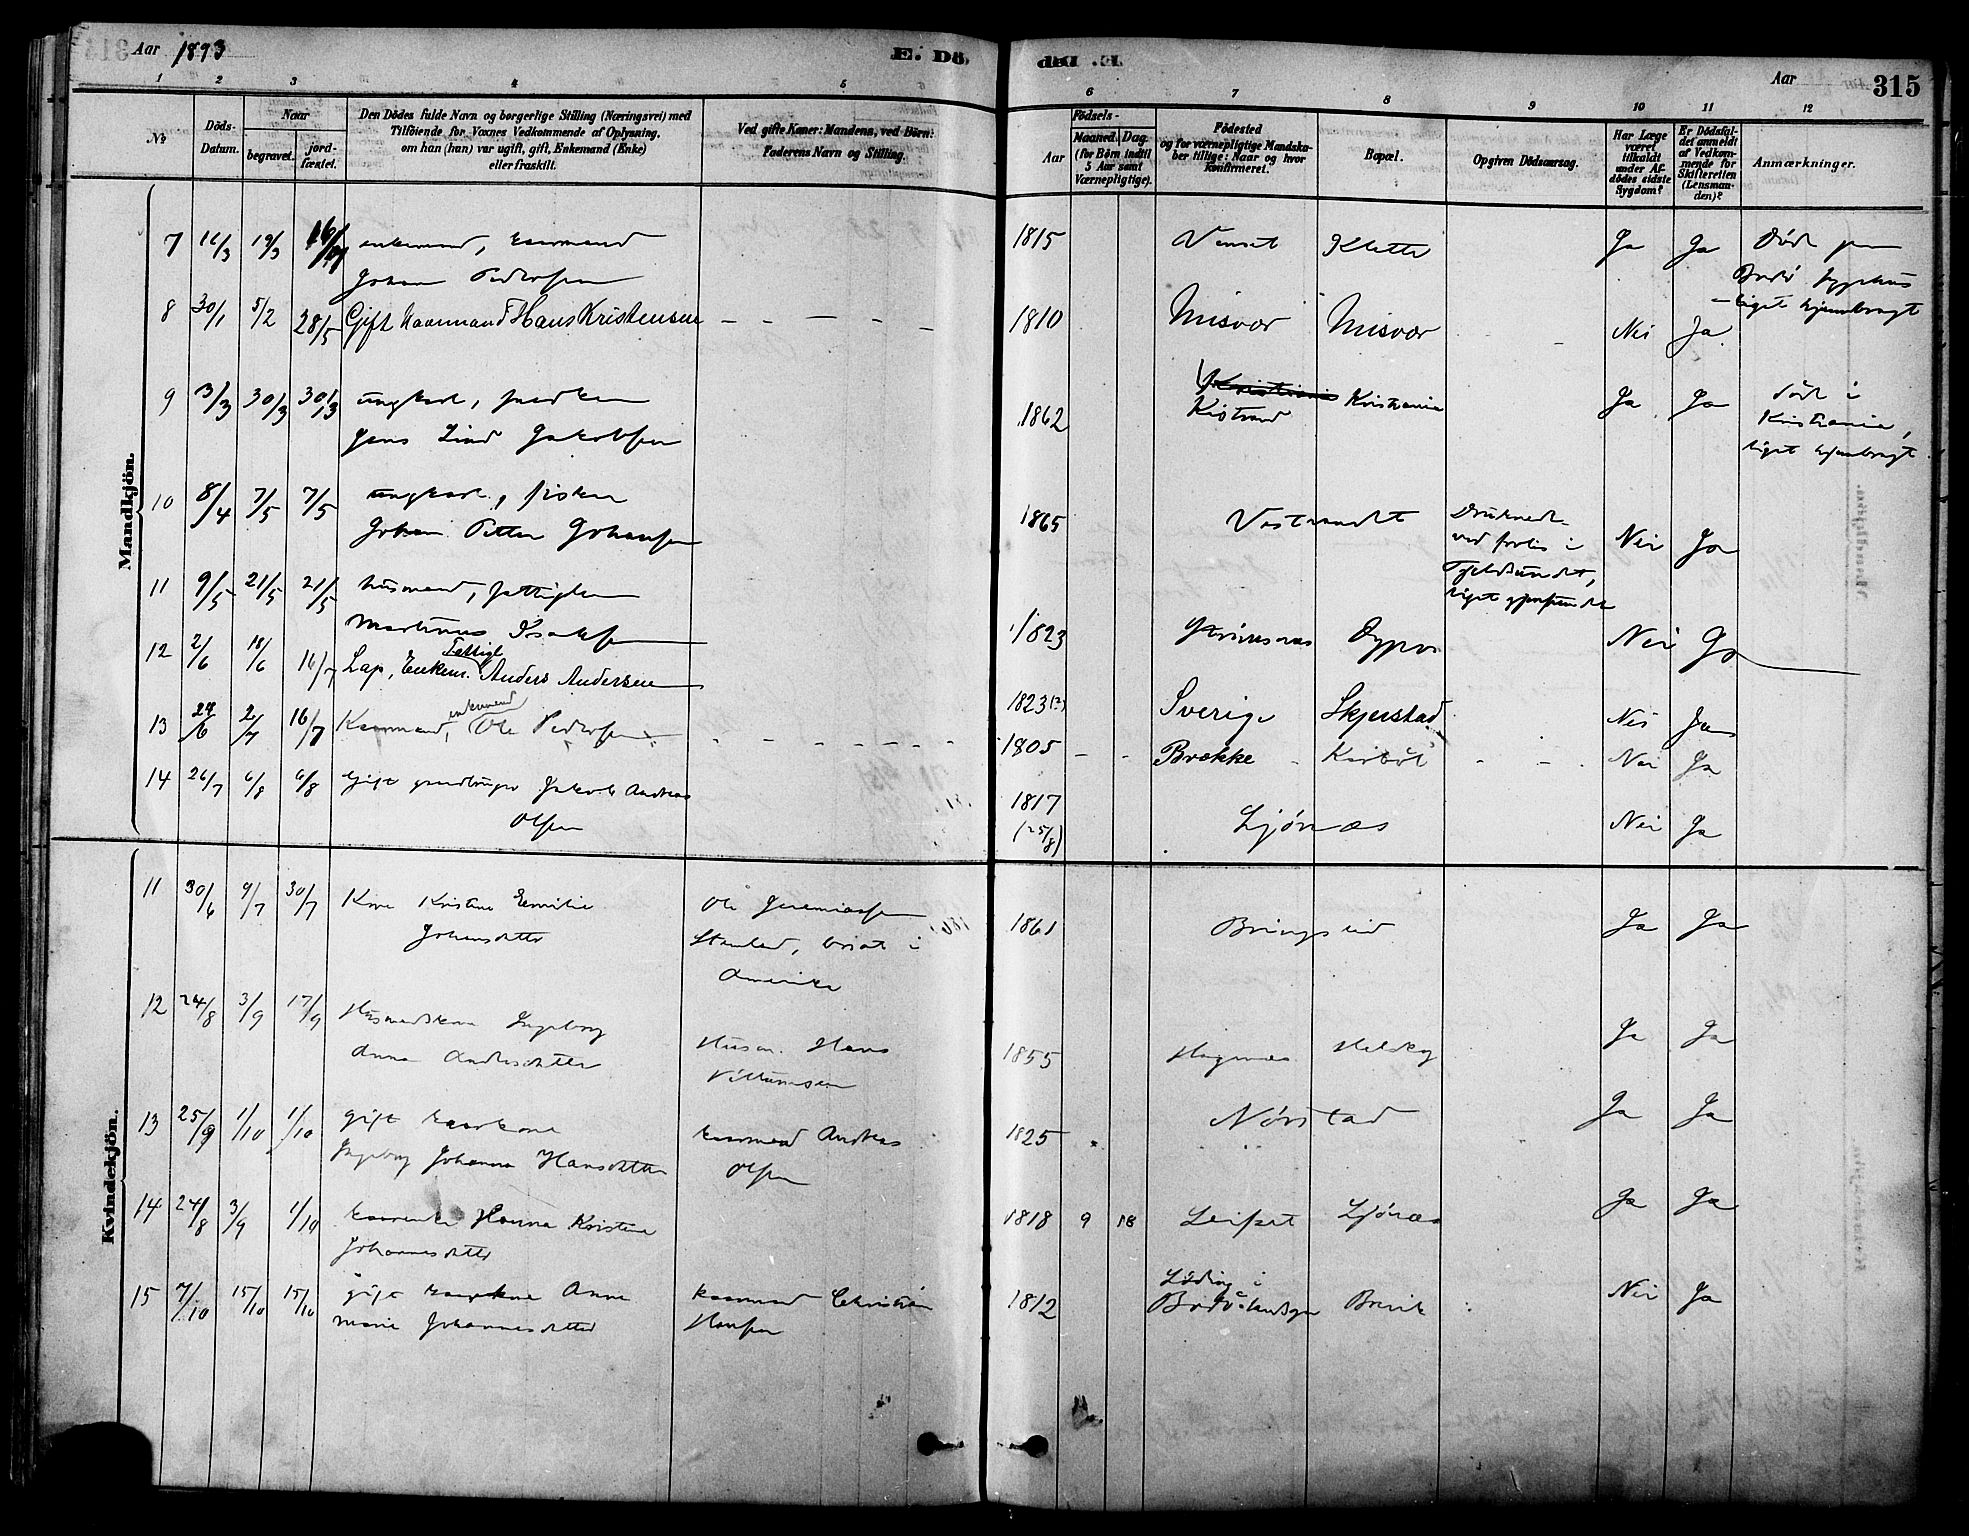 Aar 1893
E. Dö
E. Död
Aar
315
1 2 3 4 5 6 7 8 9 10 11 12
No
Döds-Datum.
Naar
begravet.
jord-fæstet.
Den Dödes fulde Navn og borgerlige Stilling (Næringsvei) med
Tilföiende for Voxnes Vedkommende af Oplysning,
om han (hun) var ugift, gift, Enkemand (Enke)
eller fraskilt.
Ved gifte Koner: Mandens, ved Börn:
Faderens Navn og Stilling.
Födsels-
Aar
Maaned. Dag.
(for Börn indtil
5 Aar samt
Værnepligtige).
Födested
og for værnepligtige Mandska-
ber tillige: Naar og hvor
Konfirmeret.
Bopæl.
Opgiven Dödsaarsag.
Har Læge
været
tilkaldt
under Af-
dödes sidste
Sygdom?
Er Dödsfal-
det anmeldt
af Vedkom-
mende for
Skifteretten
(Lensman-
den)?
Anmærkninger.
Mandkjön.
7 19/3 1815 Klette Ja Ja Död
Johan Pedersen
Bodö sygehus
liget hjembragt
8 30/1 5/2 28/5 Gift Kaarmand Hans Kristensen 1810 Misvær Misvær Nei Ja
9 3/3 30/3 30/3 ungkarl, 1862 Kistrand Kristiania Ja Ja död i
Jens Lind Jakobsen
Kristiania,
liget hjembragt
10 8/4 7/5 7/5 ungkarl, fisker 1865 Vestvandet Druknede Nei Ja
Johan Petter Johansen
ved forlis i
Tjeldsundet,
liget gjenfundet
11 9/5 21/5 21/5 husmand, fattiglem 1823 Nei Ja
Martinus Isaksen
12 2/6 18/6 16/7 Lap, Enkem. Fattigl Anders Andersen 1823 (?) Sverige Skjerstad Nei Ja
13 29/6 2/7 16/7 Kaarmand, enkemand Ole Pedersen 1805 Brække Nei Ja
14 26/7 6/8 6/8 Gift gaardbruger Jakob Andreas 1817 Ljönæs Nei Ja
Olsen
(25/8)
Kvindekjön.
11 30/6 9/7 30/7 Kone Kristine Emilie Ole Jeremiassen 1861 Bringslid Ja Ja
Johansdatter
bosat i
Amerika
12 24/8 3/9 17/9 Husmandskone Ingeborg Husm. Hans 1855 Hognæs Ja Ja
Anna Andersdatter
Villumsen
13 25/9 1/10 1/10 gift kaarkone kaarmand Andreas 1825 Nörstad Ja Ja
Ingeborg Johanna Hansdatter
Olsen
14 24/8 3/9 1/10 kaarenke Hanna Kristine 1818 9 18 Leifset Ljönæs Ja Ja
Johannesdatter
15 7/10 15/10 15/10 gift kaarkone Anne kaarmand Christian 1812 Löding i Brevik Nei Ja
Marie Johannesdatter
Hansen
Bodö landsogn